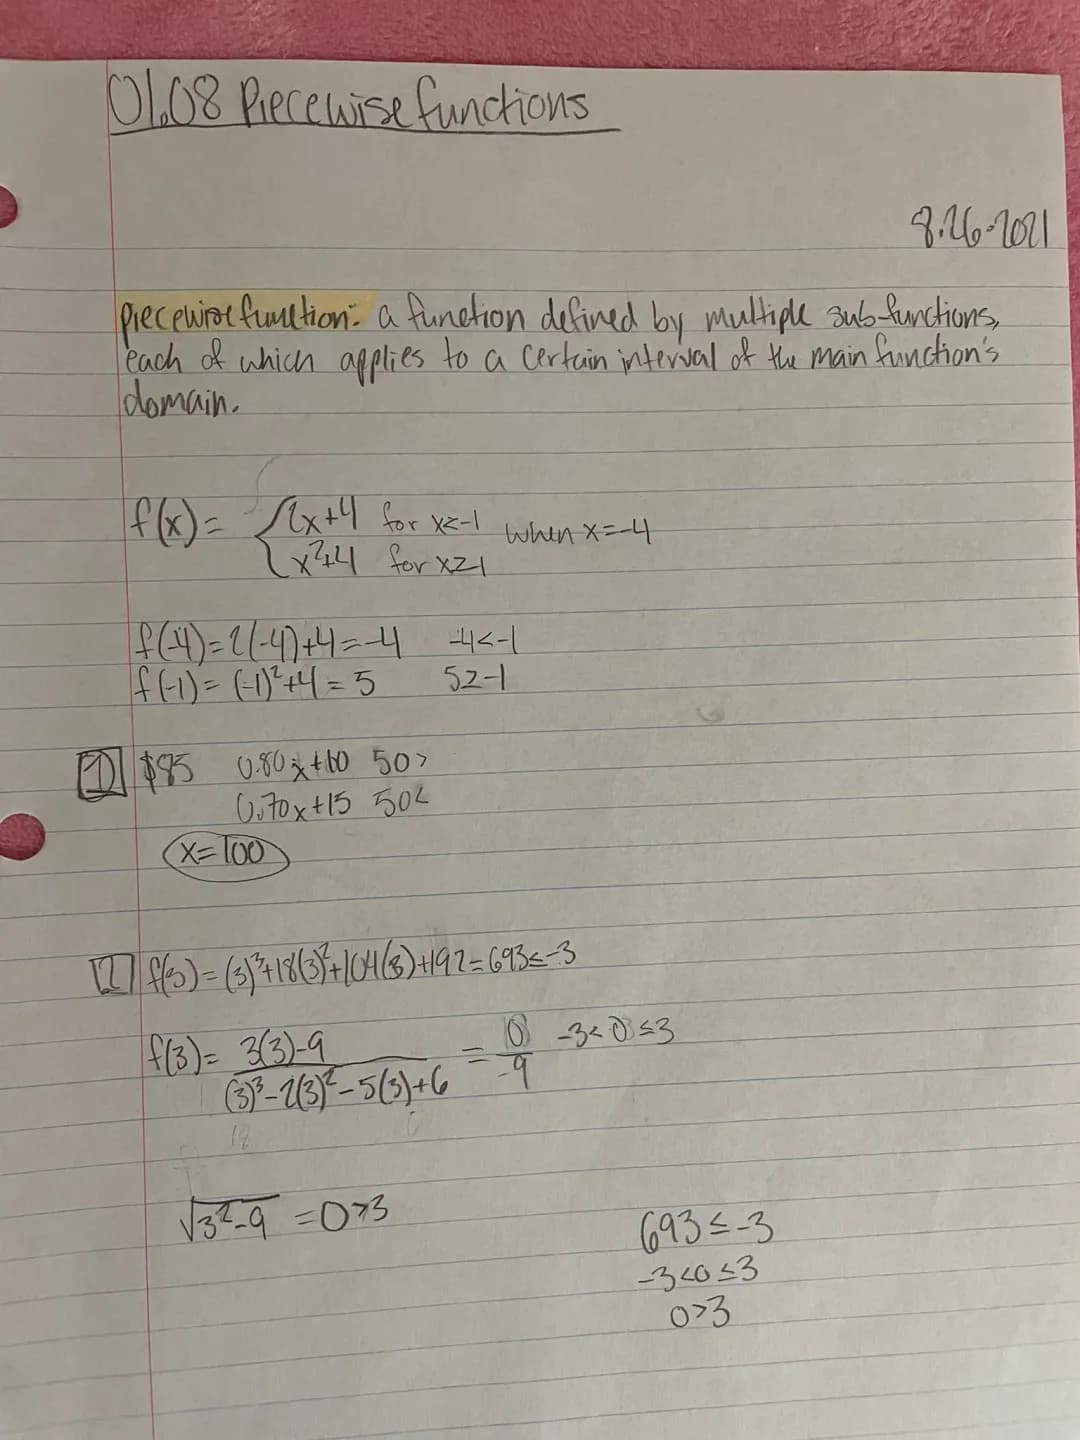 01.08 Piecewise functions
8.26.2021
piecewise function: a function defined by multiple sub-functions,
each of which applies to a certain interval of the main function's
domain.
f(x) = { 2x+4 for x<-1 when x=-4
x²+4 for x≥-1
f(-4) = 2(-4)+4 = -4 -4<-1
f(-1) = (-1)²+4 = 5 5≥-1
1 $85 0.80x+10 50>
0.70x+15 50<
x=100
2 f(3) = (3)³+18(3)²+104(3)+192 = 693≤-3
f(3) = 3(3)-9 / (3)³-2(3)²-5(3)+6 = 0/-9 -3<0≤3
18
√3²-9 = 0>3
693 ≤ -3
-3<0≤3
0>3